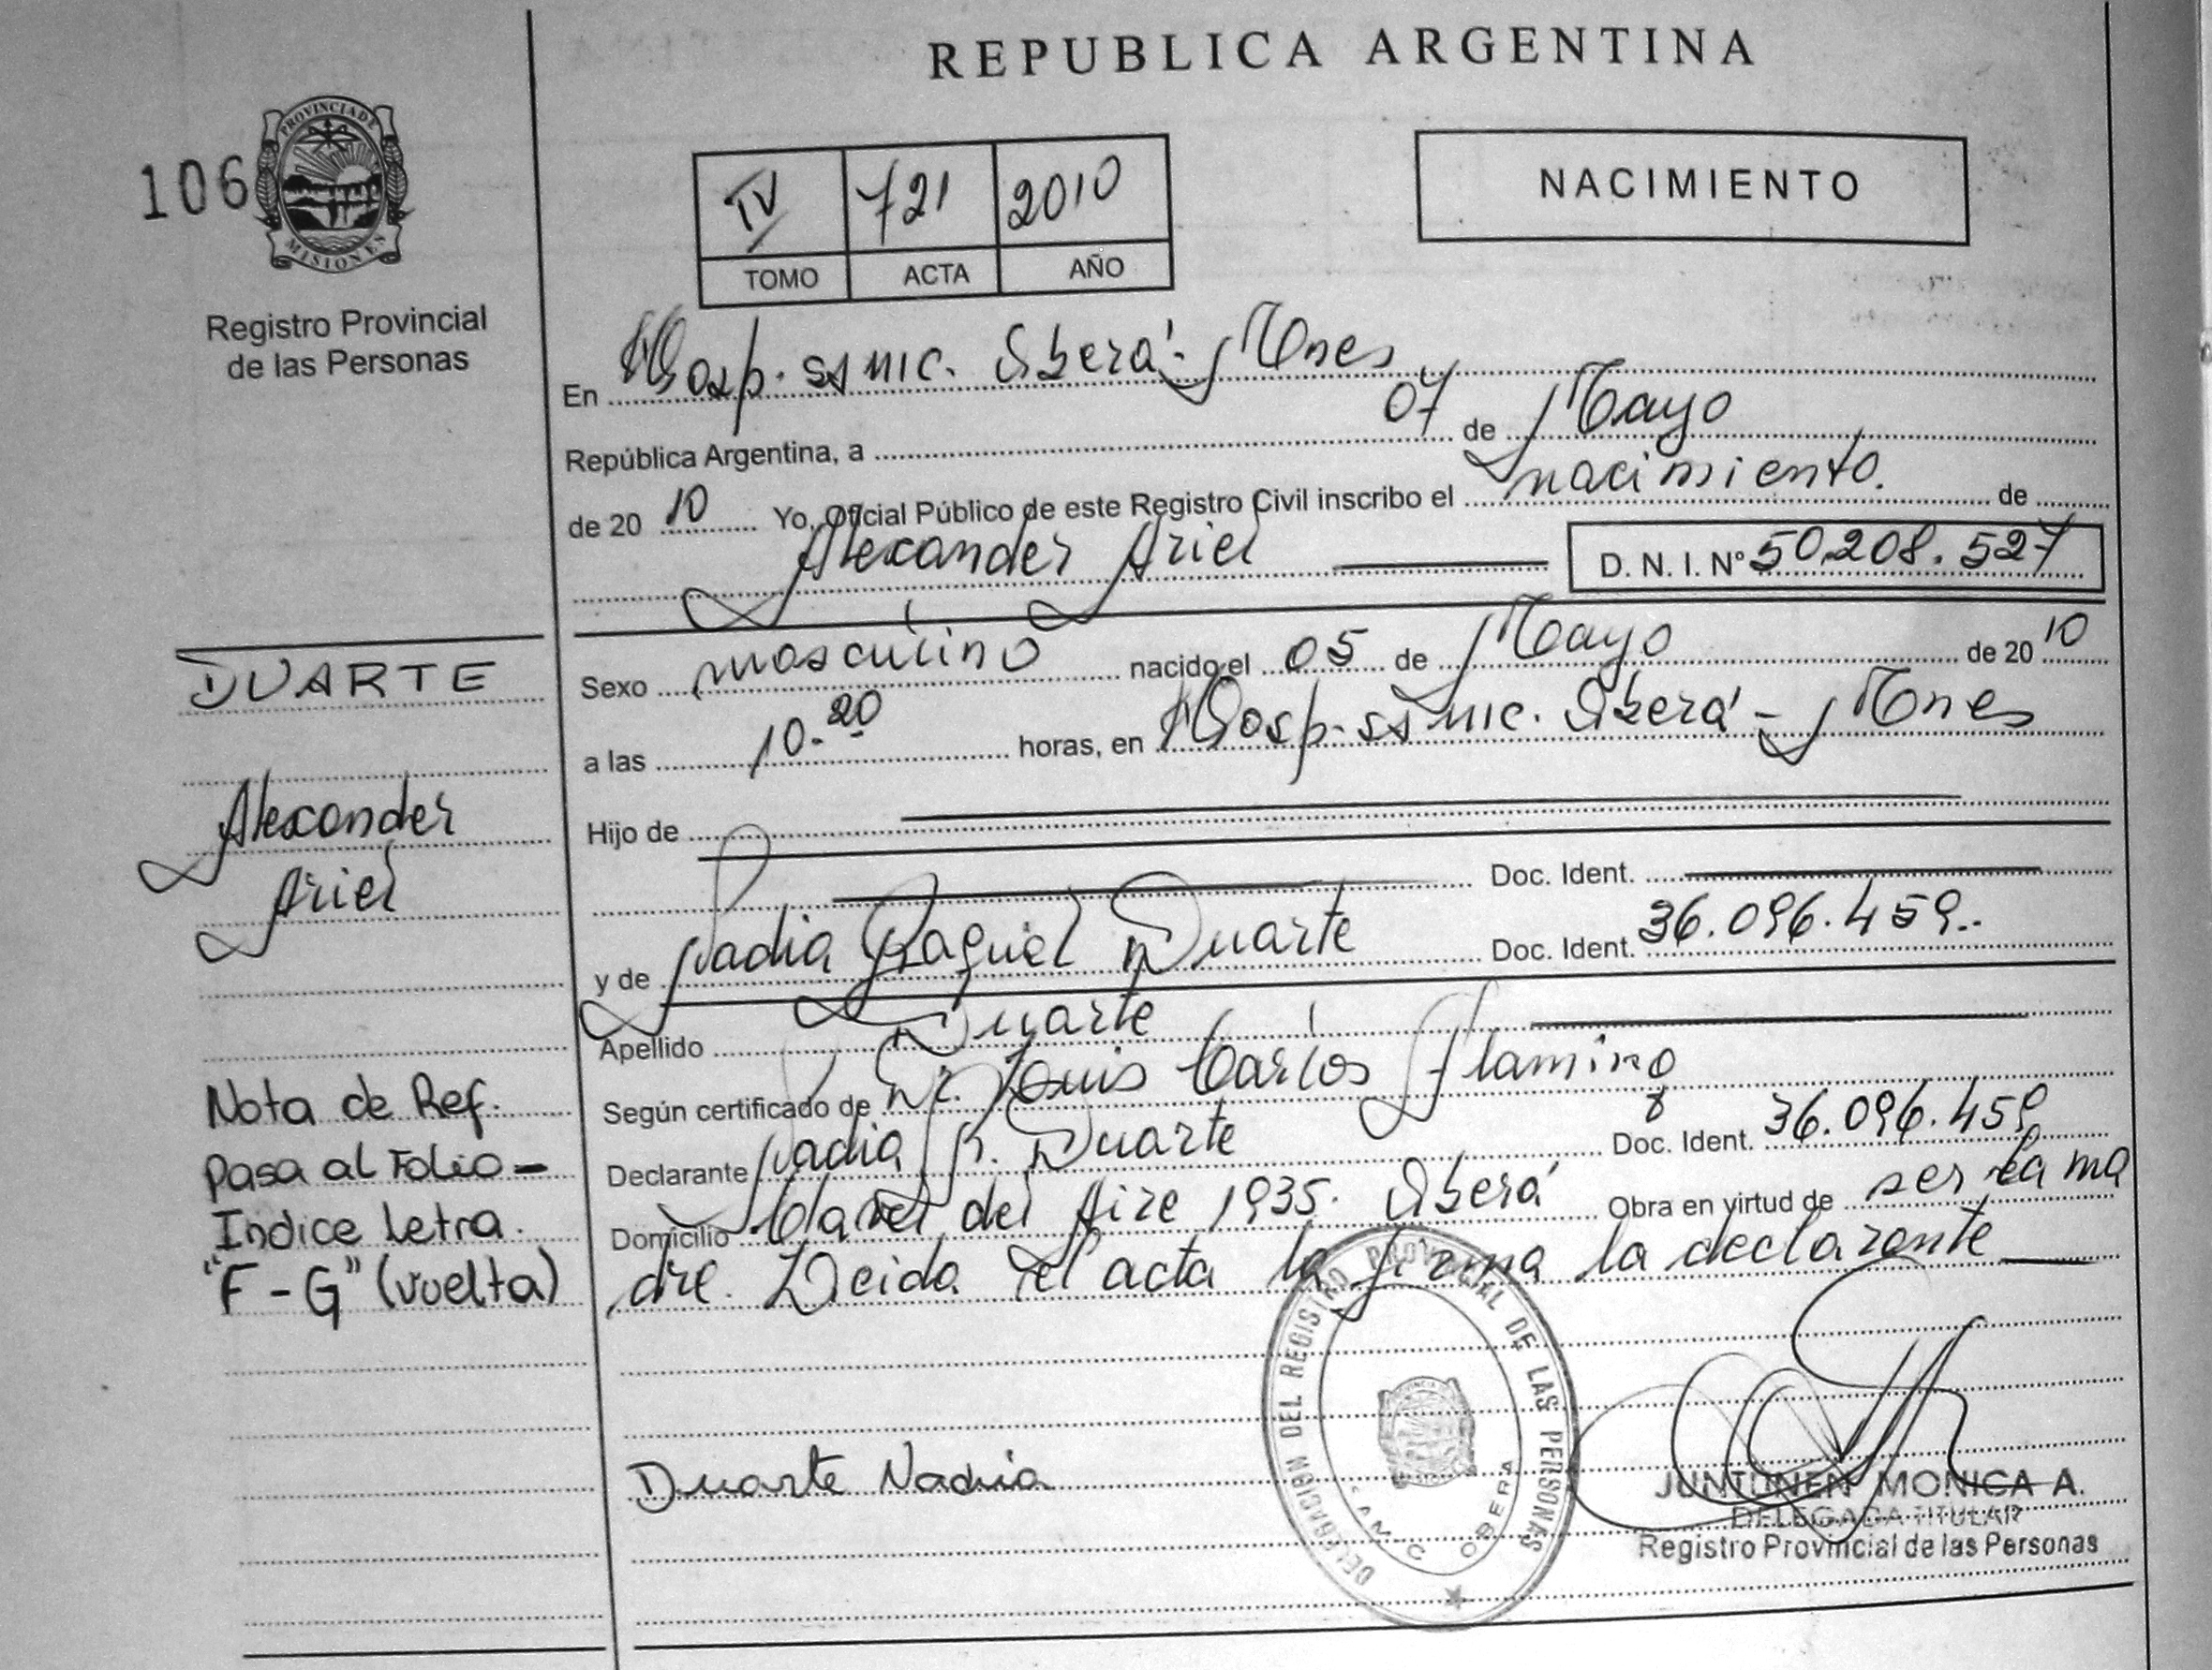 REPUBLICA ARGENTINA
106
PROVINCIA DE
MISIONES
Registro Provincial
de las Personas
IV 721 2010
TOMO ACTA AÑO
NACIMIENTO
En Hosp. ss mic. Oberá - Mnes
República Argentina, a 07 de Mayo
de 20 10 Yo, Oficial Público de este Registro Civil inscribo el nacimiento. de
Alexander Ariel D. N. I. Nº 50.208.527
DUARTE
Alexander
Ariel
Sexo masculino nacido el 05 de Mayo de 20 10
a las 10.20 horas, en Hosp. ss mic. Oberá - Mnes
Hijo de
Doc. Ident.
y de Nadia Raquel Duarte Doc. Ident. 36.096.459..
Apellido Duarte
Según certificado de Dr. Luis Carlos Flamino
Declarante Nadia R. Duarte Doc. Ident. 36.096.459
Domicilio Clavel del Aire 1935. Oberá Obra en virtud de ser la ma
dre. Leida el acta la firma la declarante
Nota de Ref.
Pasa al Folio -
Indice Letra.
"F - G" (vuelta)
DELEGACION DEL REGISTRO PROVINCIAL DE LAS PERSONAS
OBERA
Duarte Nadia
JUNTUNEN MONICA A.
DELEGADA TITULAR
Registro Provincial de las Personas